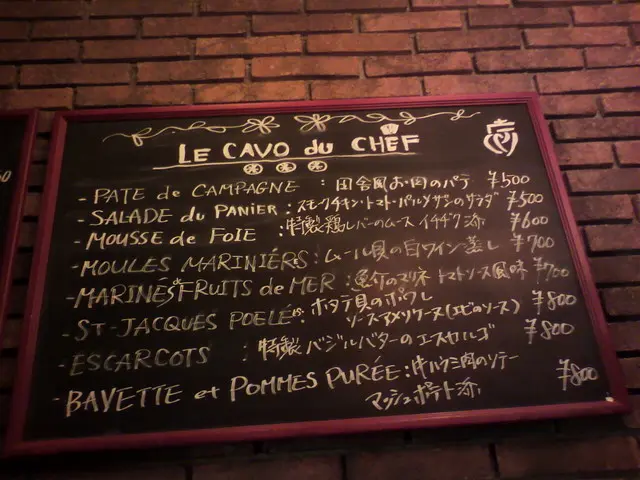 LE CAVO du CHEF
- PATE de CAMPAGNE : 田舎風お肉のパテ ¥500
- SALADE du PANIER : スモークチキン・トマト・パルメザンのサラダ ¥500
- MOUSSE de FOIE : 特製鶏レバーのムース イチヂク添 ¥600
- MOULES MARINIÉRS : ムール貝の白ワイン蒸し ¥700
- MARINÉS de FRUITS de MER : 魚介のマリネ トマトソース風味 ¥700
- ST-JACQUES POELÉS : ホタテ貝のポワレ
ソースアメリケーヌ(エビのソース) ¥800
- ESCARGOTS : 特製バジルバターのエスカルゴ ¥800
- BAVETTE et POMMES PURÉE : 牛ハラミ肉のソテー
マッシュポテト添 ¥800